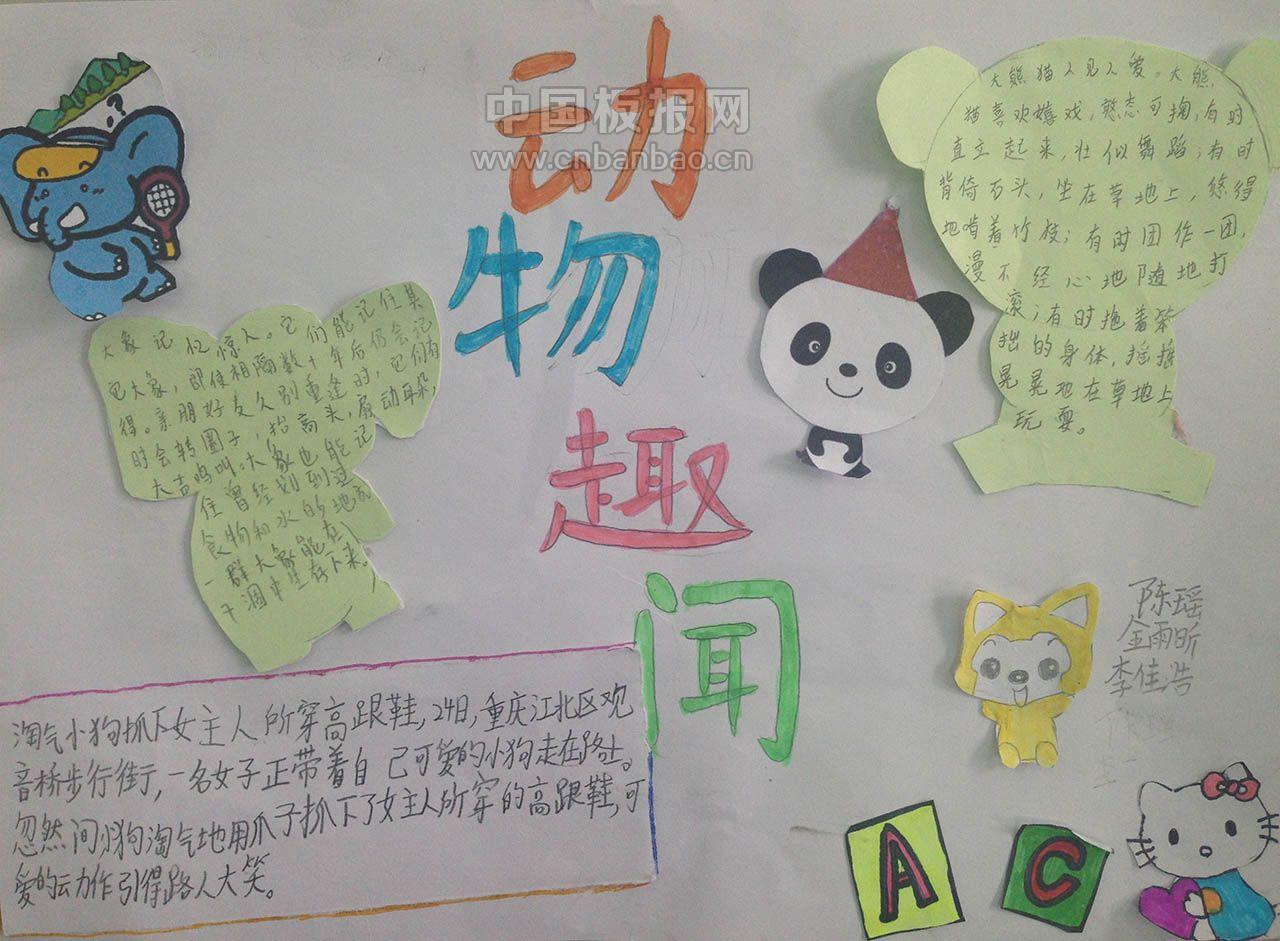 动
中国板报网
www.cnbanbao.cn
物
趣
闻
大象记亿惊人。它们能记住集
它大象，即使相隔数十年后仍会记
得。亲朋好友久别重逢时，它们有
时会转圈子，抬高头，扇动耳朵，
大吉鸣叫。大象也能记
住曾经划到过
食物和水的地方
一群大象能在
干涸中生存下来。
大熊猫人见人爱。大熊
猫喜欢嬉戏，憨态可掬，有时
直立起来，壮似舞蹈；有时
背倚石头，坐在草地上，悠得
地啃着竹枝；有时团作一团，
漫不经心地随地打
滚；有时拖着笨
拙的身体，摇摇
晃晃地在草地上
玩耍。
淘气小狗抓下女主人所穿高跟鞋，24日，重庆江北区观
音桥步行街，一名女子正带着自己可爱的小狗走在路上。
忽然间小狗淘气地用爪子抓下了女主人所穿的高跟鞋，可
爱的动作引得路人大笑。
陈瑶
金雨昕
李佳浩
?
A
C